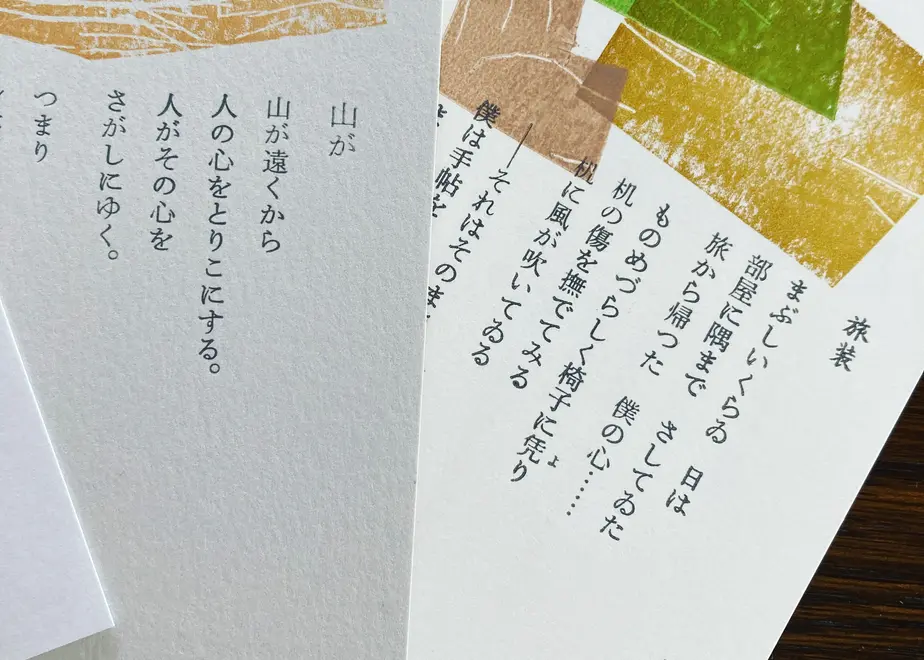 旅装
まぶしいくらゐ　日は
部屋に隅まで　さしてゐた
旅から帰つた　僕の心……
ものめづらしく椅子に凭り
机の傷を撫でてみる
机に風が吹いてゐる
――それはそのま
僕は手帖を
山が
山が遠くから
人の心をとりこにする。
人がその心を
さがしにゆく。
つまり